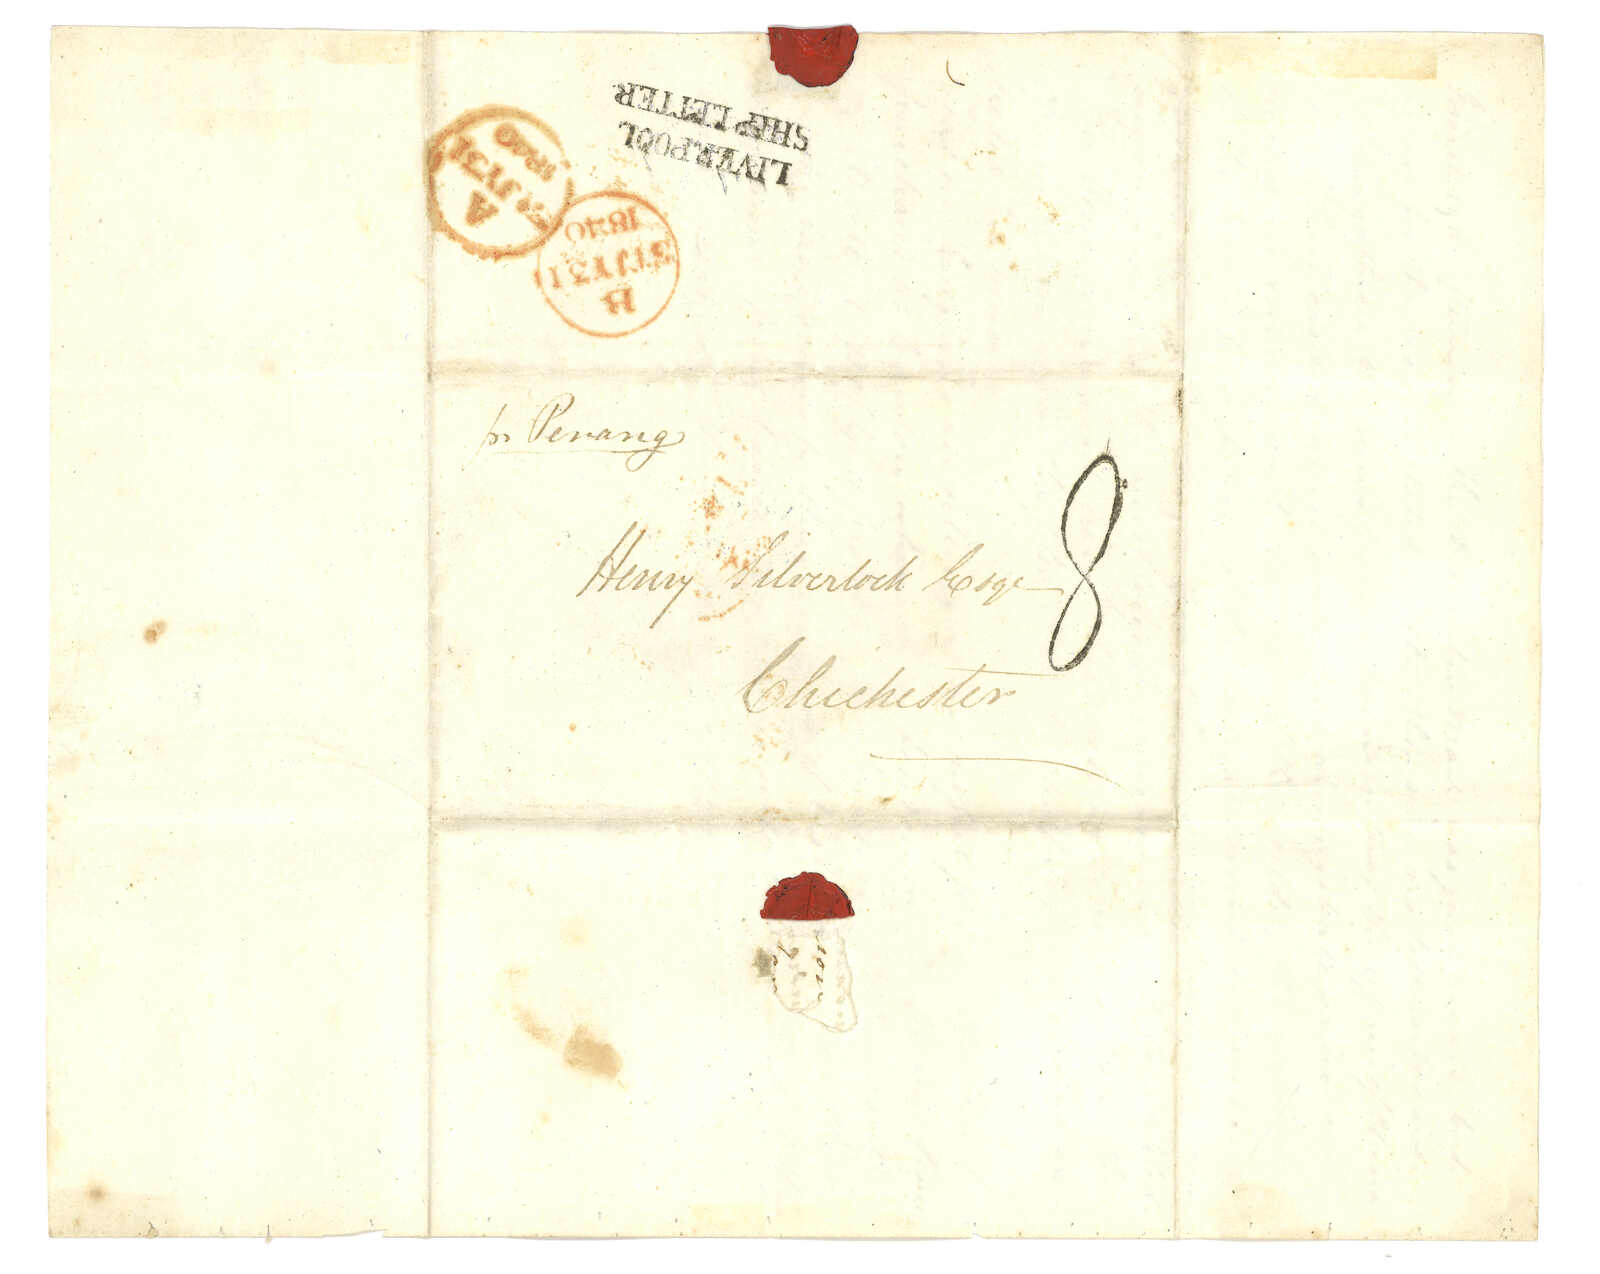 LIVERPOOL
SHIP LETTER
A
31 JY 31
1840
B
31 JY 31
1840
pr Penang
8
Henry Silverlock Esqe
Chichester